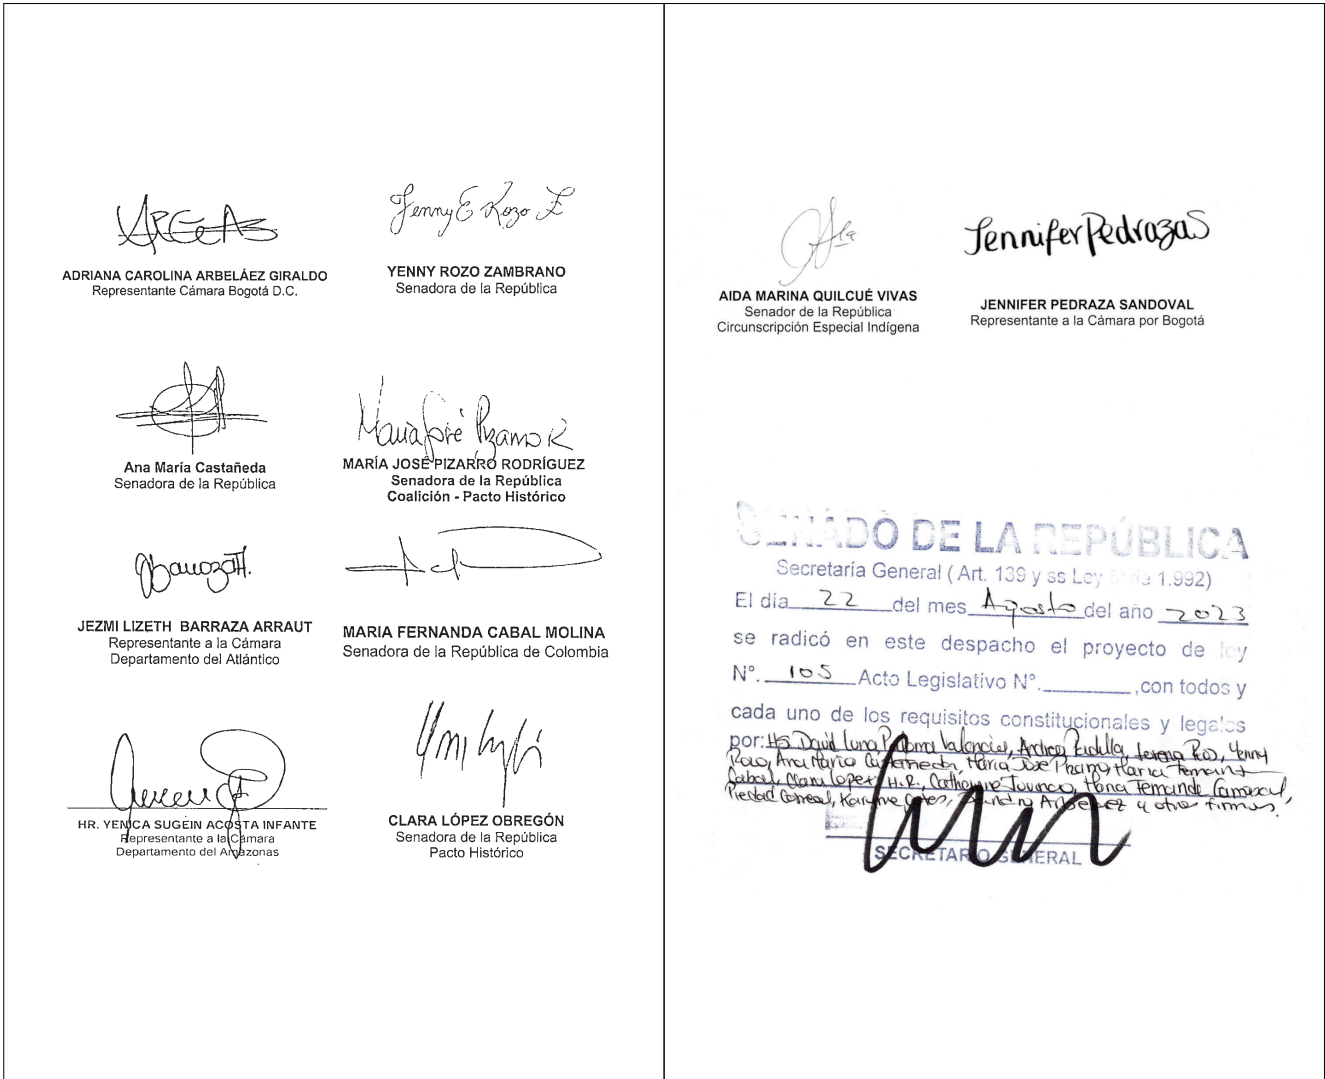 ADRIANA CAROLINA ARBELÁEZ GIRALDO
Representante Cámara Bogotá D.C.
Yenny E Rozo Z
YENNY ROZO ZAMBRANO
Senadora de la República
Ana María Castañeda
Senadora de la República
María José Pizarro R
MARÍA JOSÉ PIZARRO RODRÍGUEZ
Senadora de la República
Coalición - Pacto Histórico
JEZMI LIZETH BARRAZA ARRAUT
Representante a la Cámara
Departamento del Atlántico
MARIA FERNANDA CABAL MOLINA
Senadora de la República de Colombia
HR. YENICA SUGEIN ACOSTA INFANTE
Representante a la Cámara
Departamento del Amazonas
CLARA LÓPEZ OBREGÓN
Senadora de la República
Pacto Histórico
AIDA MARINA QUILCUÉ VIVAS
Senador de la República
Circunscripción Especial Indígena
Jennifer Pedraza S
JENNIFER PEDRAZA SANDOVAL
Representante a la Cámara por Bogotá
SENADO DE LA REPÚBLICA
Secretaría General ( Art. 139 y ss Ley 5ª de 1.992)
El día 22 del mes Agosto del año 2023
se radicó en este despacho el proyecto de ley
N°. 105 Acto Legislativo N°. ,con todos y
cada uno de los requisitos constitucionales y legales
por: HS David Luna, Paloma Valencia, Andrea Padilla, Lorena Rios, Yenny
Rozo, Ana Maria Castañeda, Maria José Pizarro, Maria Fernanda
Cabal, Clara Lopez, H.R. Catherine Juvinao, Maria Fernanda Carrascal,
Piedad Correal, y otras firmas.
SECRETARIO GENERAL